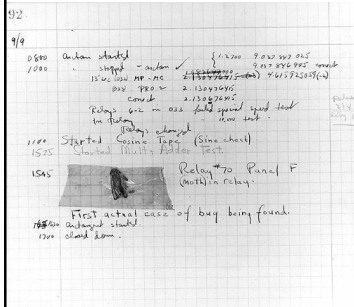 92
9/9
0800 Antan started
1000 " stopped - antan ✓ { 1.2700 9.037 847 025
9.037 846 995 correct
13"uc (032) MP-MC 4.615925059(-2)
033 PRO 2 2.130476415
correct 2.130676415
Relays 6-2 in 033 failed special speed test
in Relay 11,000 test.
Relays changed
1100 Started Cosine Tape (Sine check)
1525 Started Multi Adder Test.
1545 Relay #70 Panel F
(moth) in relay.
First actual case of bug being found.
antangent started.
1700 closed down.